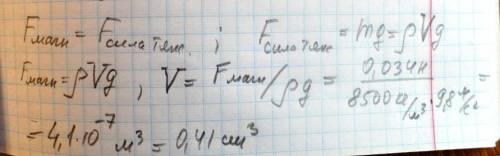 Fмагн = Fсила тяж. ; Fсила тяж = mg = ρVg
Fмагн = ρVg , V = Fмагн/ρg = 0,034н / 8500кг/м³ · 9,8 м/с² =
= 4,1·10⁻⁷ м³ = 0,41 см³